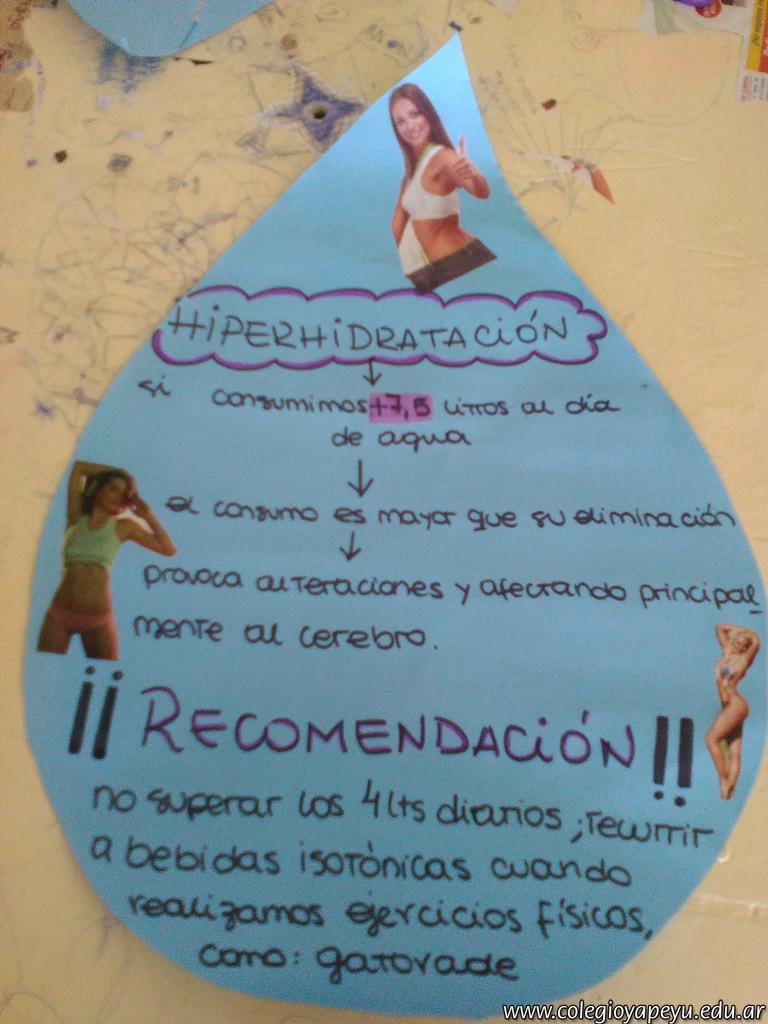 HIPERHIDRATACIÓN
si consumimos +7,5 litros al día
de agua
el consumo es mayor que su eliminación
provoca alteraciones y afectando principal
mente al cerebro.
¡¡RECOMENDACIÓN!!
no superar los 4 lts diarios, recurrir
a bebidas isotónicas cuando
realizamos ejercicios físicos,
como: gatorade
www.colegioyapeyu.edu.ar